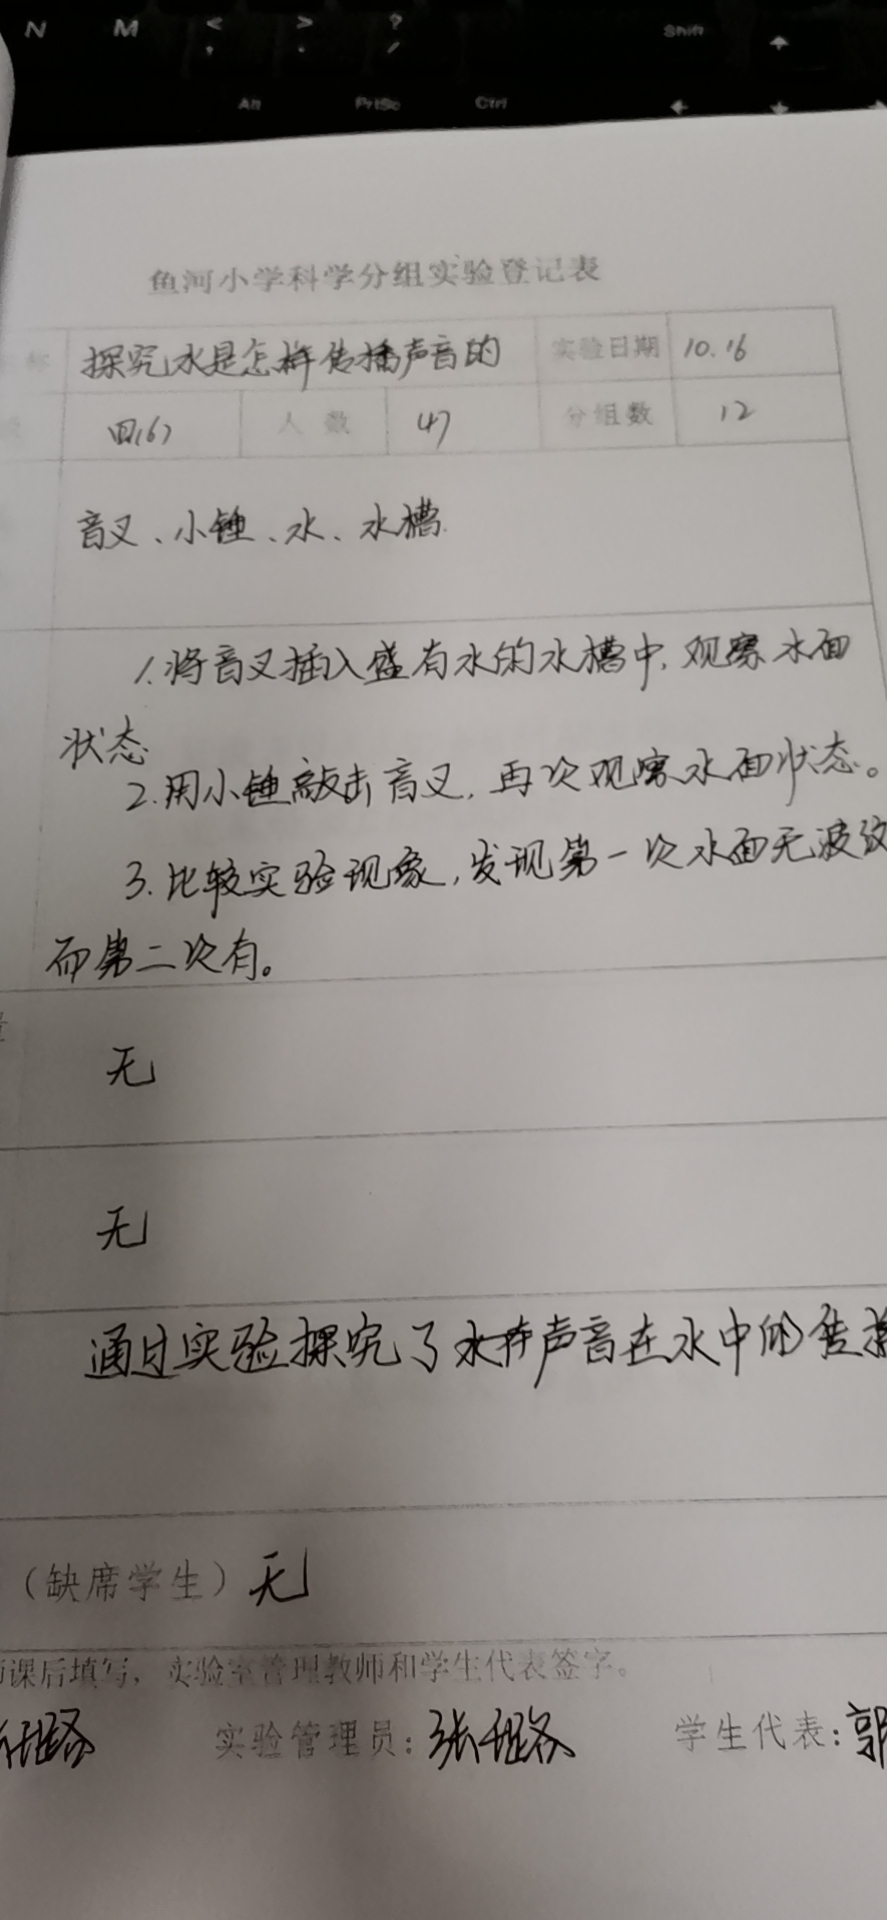 N M < , > . ? / Shift
Alt PrtSc Ctrl
鱼河小学科学分组实验登记表
称 探究水是怎样传播声音的 实验日期 10.16
四(6) 人数 47 分组数 12
音叉、小锤、水、水槽.
1.将音叉插入盛有水的水槽中,观察水面
状态.
2.用小锤敲击音叉,再次观察水面状态。
3.比较实验现象,发现第一次水面无波纹
而第二次有。
无
无
通过实验探究了声音在水中的传播
(缺席学生)无
师课后填写,实验室管理教师和学生代表签字。
实验管理员: 学生代表:郭